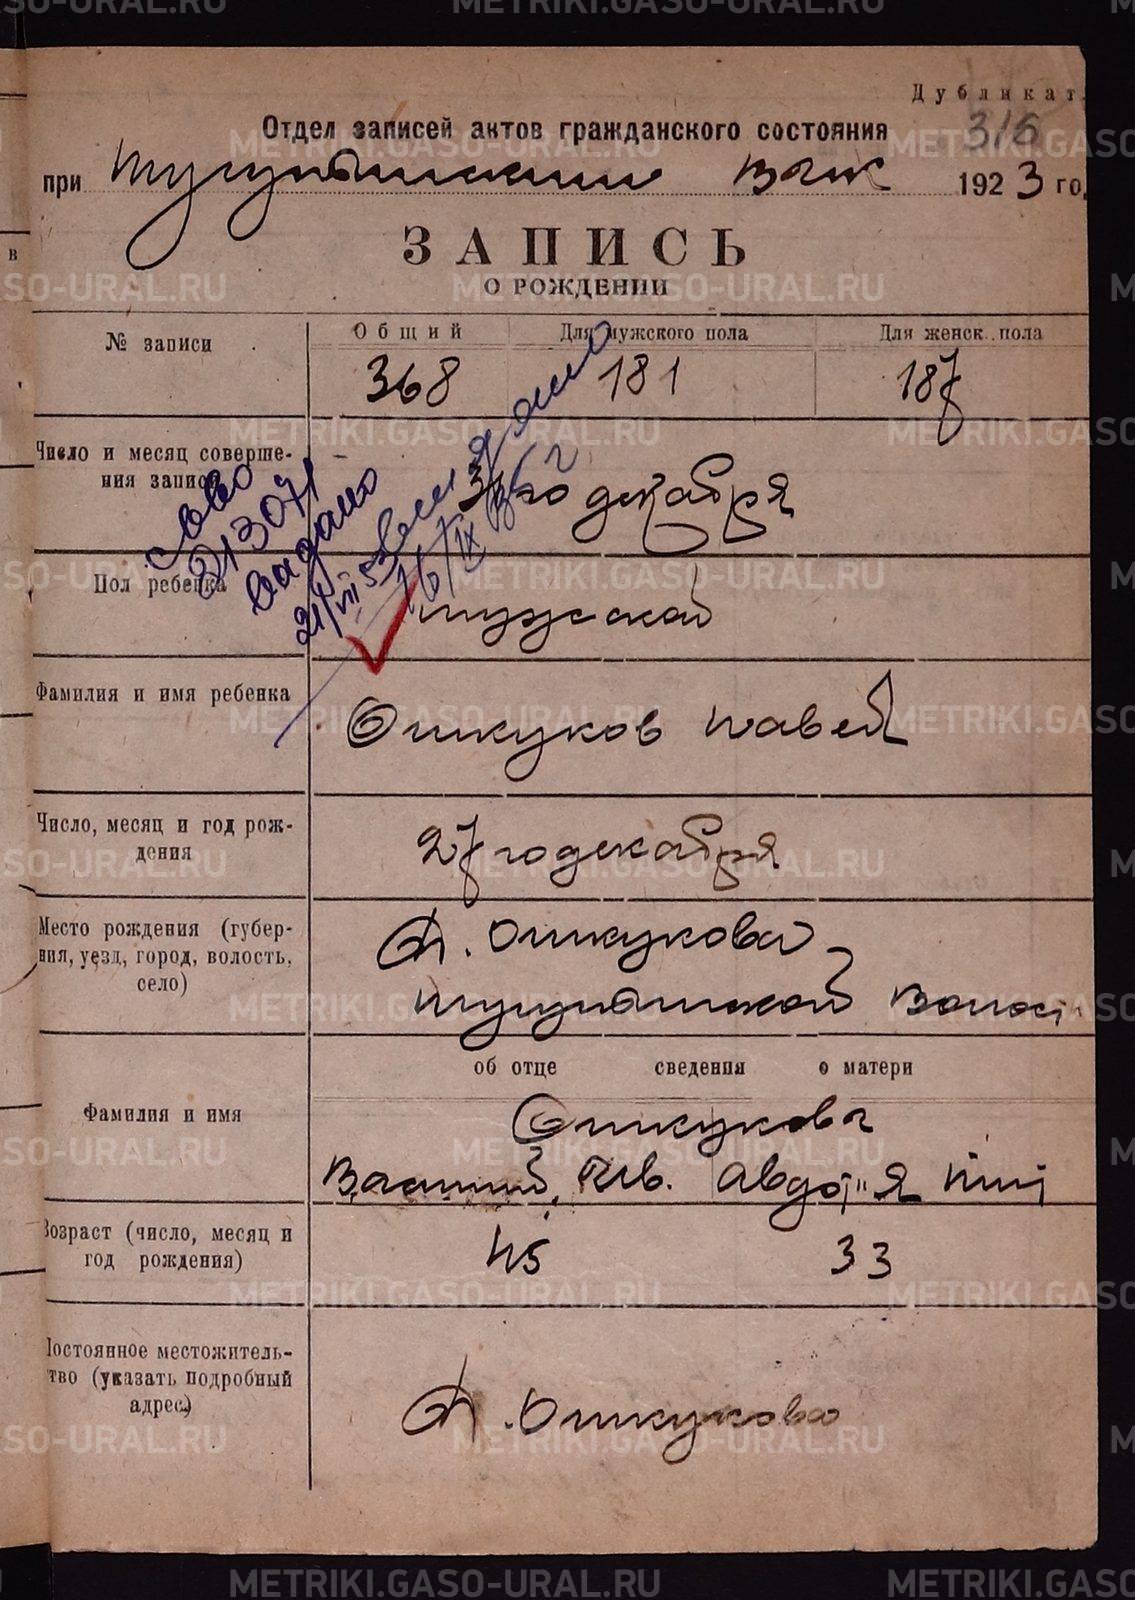 Дубликат.
316
Отдел записей актов гражданского состояния
при Шугуныжским Вик 1923 го.
ЗАПИСЬ
О РОЖДЕНИИ
№ записи
Общий
Для мужского пола
Для женск. пола
368
181
187
Число и месяц соверше-
ния записи
31го декабря
сово
213071
выдано
21/VII 53
16/IX
Пол ребенка
мужской
Фамилия и имя ребенка
Ошкуков Павел
Число, месяц и год рож-
дения
27го декабря
Место рождения (губер-
ния, уезд, город, волость,
село)
Д. Ошкукова
волост
об отце сведения о матери
Фамилия и имя
Ошкукова
Василий, Ив. Авдотья
Возраст (число, месяц и
год рождения)
45
33
Постоянное местожитель-
тво (указать подробный
адрес)
Д. Ошкукова
METRIKI.GASO-URAL.RU